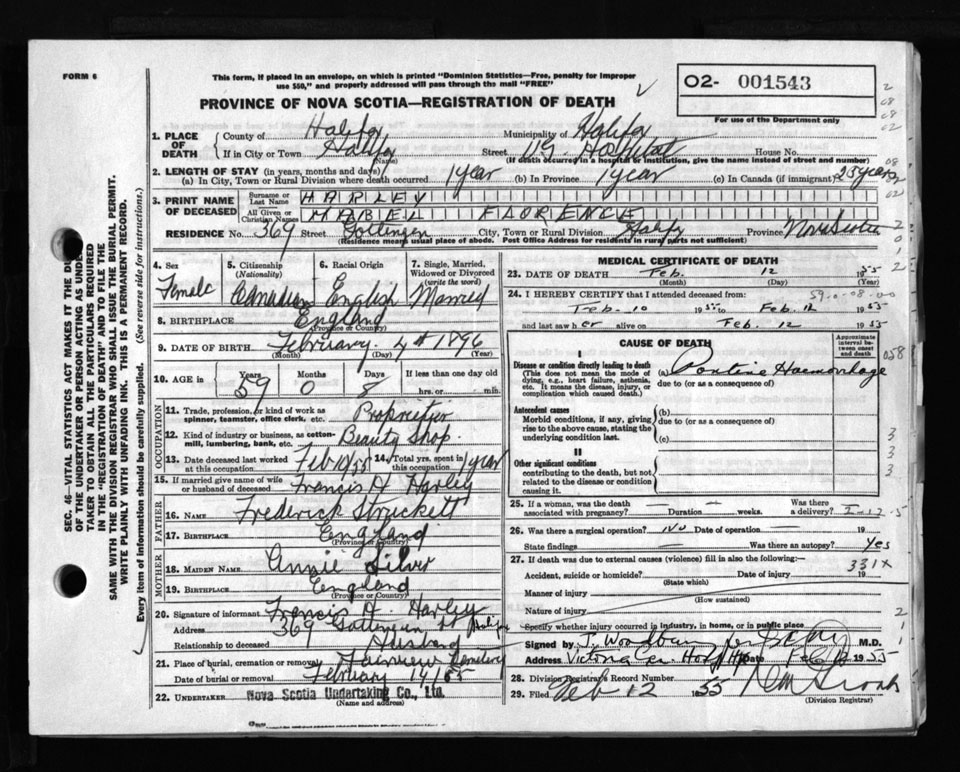 FORM 6
This form, if placed in an envelope, on which is printed "Dominion Statistics—Free, penalty for improper
use $50," and properly addressed will pass through the mail "FREE"
O2- 001543
For use of the Department only
PROVINCE OF NOVA SCOTIA—REGISTRATION OF DEATH
SEC. 46—VITAL STATISTICS ACT MAKES IT THE DUTY
OF THE UNDERTAKER OR PERSON ACTING AS UNDER-
TAKER TO OBTAIN ALL THE PARTICULARS REQUIRED
IN THE "REGISTRATION OF DEATH" AND TO FILE THE
SAME WITH THE DIVISION REGISTRAR WHO SHALL ISSUE THE BURIAL PERMIT.
WRITE PLAINLY WITH UNFADING INK. THIS IS A PERMANENT RECORD.
Every item of information should be carefully supplied. (See reverse side for instructions.)
1. PLACE OF DEATH County of Halifax Municipality of Halifax
If in City or Town Halifax (Name) Street V.G. Hospital House No.
(If death occurred in a hospital or institution, give the name instead of street and number)
2. LENGTH OF STAY (in years, months and days)
(a) In City, Town or Rural Division where death occurred 1 year (b) In Province 1 year (c) In Canada (if immigrant) 25 years
3. PRINT NAME OF DECEASED Surname or Last Name HARLEY
All Given or Christian Names MABEL FLORENCE
RESIDENCE No. 369 Street Gottingen City, Town or Rural Division Halifax Province Nova Scotia
(Residence means usual place of abode. Post Office Address for residents in rural parts not sufficient)
4. Sex Female
5. Citizenship (Nationality) Canadian
6. Racial Origin English
7. Single, Married, Widowed or Divorced (write the word) Married
8. BIRTHPLACE England
(Province or Country)
9. DATE OF BIRTH February 4th 1896
(Month) (Day) (Year)
10. AGE in Years 59 Months 0 Days 8 If less than one day old
hrs. or min.
OCCUPATION
11. Trade, profession, or kind of work as spinner, teamster, office clerk, etc. Proprietor
12. Kind of industry or business, as cotton-mill, lumbering, bank, etc. Beauty Shop.
13. Date deceased last worked at this occupation Feb 10/55 14. Total yrs. spent in this occupation 1 year
15. If married give name of wife or husband of deceased Francis H Harley
FATHER
16. NAME Frederick Struckett
17. BIRTHPLACE England
(Province or Country)
MOTHER
18. MAIDEN NAME Annie Silver
19. BIRTHPLACE England
(Province or Country)
20. Signature of informant Francis H. Harley
Address 369 Gottingen St Halifax
Relationship to deceased Husband
21. Place of burial, cremation or removal Fairview Cemetery
Date of burial or removal February 14/55
22. UNDERTAKER Nova Scotia Undertaking Co., Ltd.
(Name and address)
MEDICAL CERTIFICATE OF DEATH
23. DATE OF DEATH Feb. 12 1955
(Month) (Day) (Year)
59-0-08-00
24. I HEREBY CERTIFY that I attended deceased from:
Feb. 10 1955 to Feb. 12 1955
and last saw her alive on Feb. 12 1955
CAUSE OF DEATH
Approximate interval between onset and death
I
Disease or condition directly leading to death
(This does not mean the mode of dying, e.g., heart failure, asthenia, etc. It means the disease, injury, or complication which caused death.)
(a) Pontine Haemorrhage
due to (or as a consequence of)
058
Antecedent causes
Morbid conditions, if any, giving rise to the above cause, stating the underlying condition last.
(b)
due to (or as a consequence of)
(c)
II
Other significant conditions
contributing to the death, but not related to the disease or condition causing it.
25. If a woman, was the death associated with pregnancy? — Duration — weeks. Was there a delivery?
26. Was there a surgical operation? No Date of operation —
State findings — Was there an autopsy? Yes
27. If death was due to external causes (violence) fill in also the following:
331X
Accident, suicide or homicide? Date of injury 19
(State which)
Manner of injury
(How sustained)
Nature of injury
Specify whether injury occurred in Industry, in home, or in public place
Signed by J. Woodbury M.D.
Address Victoria Gen Hosp Hfx Date Feb 1955
28. Division Registrar's Record Number
29. Filed Feb 12 1955
(Division Registrar)